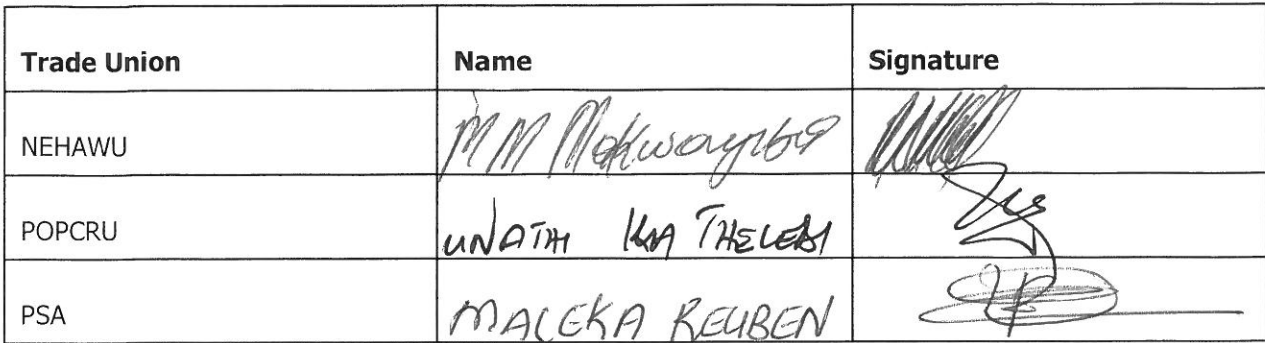 Trade Union Name Signature
NEHAWU MM
POPCRU UNATHI THELEDI
PSA MALEKA REUBEN